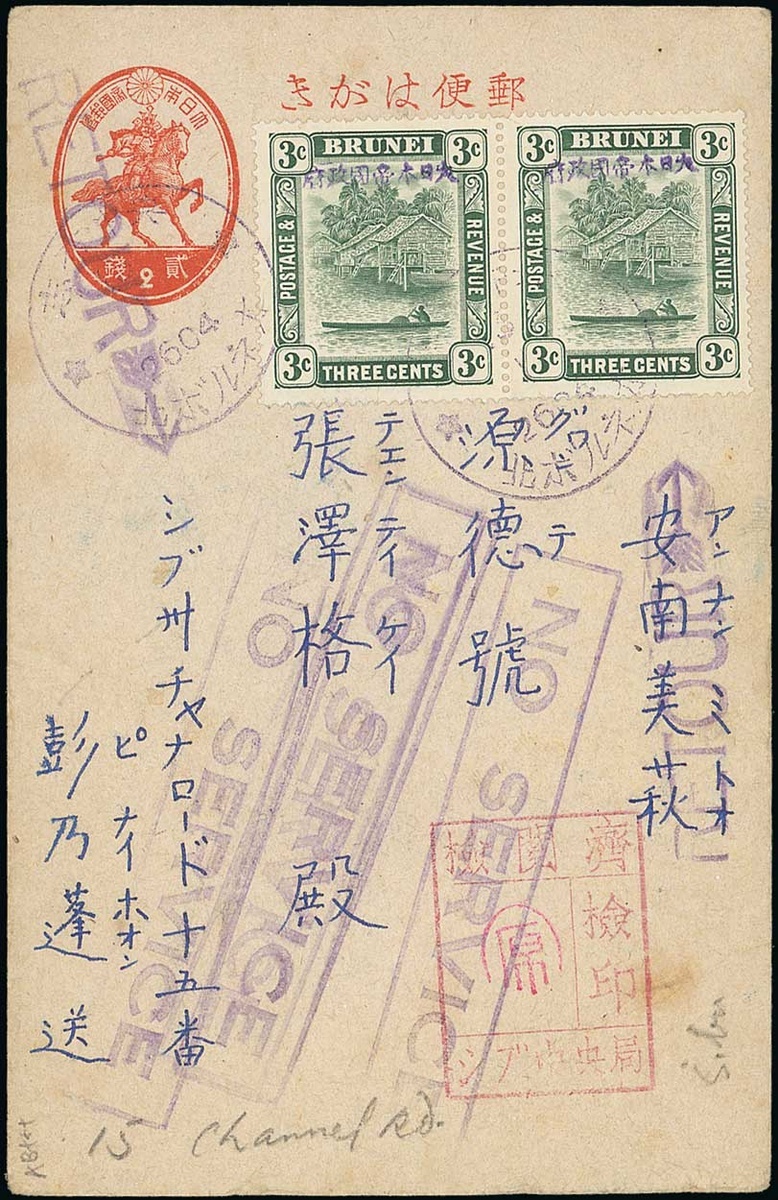 きがは便郵
大日本帝國郵便
貳 2 錢
BRUNEI
3c 3c
大日本帝國政府
POSTAGE & REVENUE
3c THREE CENTS 3c
BRUNEI
3c 3c
大日本帝國政府
POSTAGE & REVENUE
3c THREE CENTS 3c
RETOUR
2604
北ボルネオ
北ボルネオ
RETOUR
アンナン ミトオ
安南美萩
源德號
テエンテイケイ
張澤格 殿
シブ州チャナロード十五番
ピナイホオン
彭乃蓬送
NO SERVICE
NO SERVICE
NO SERVICE
檢閲濟
檢印
シブ中央局
Sibu
15 Channel Rd.